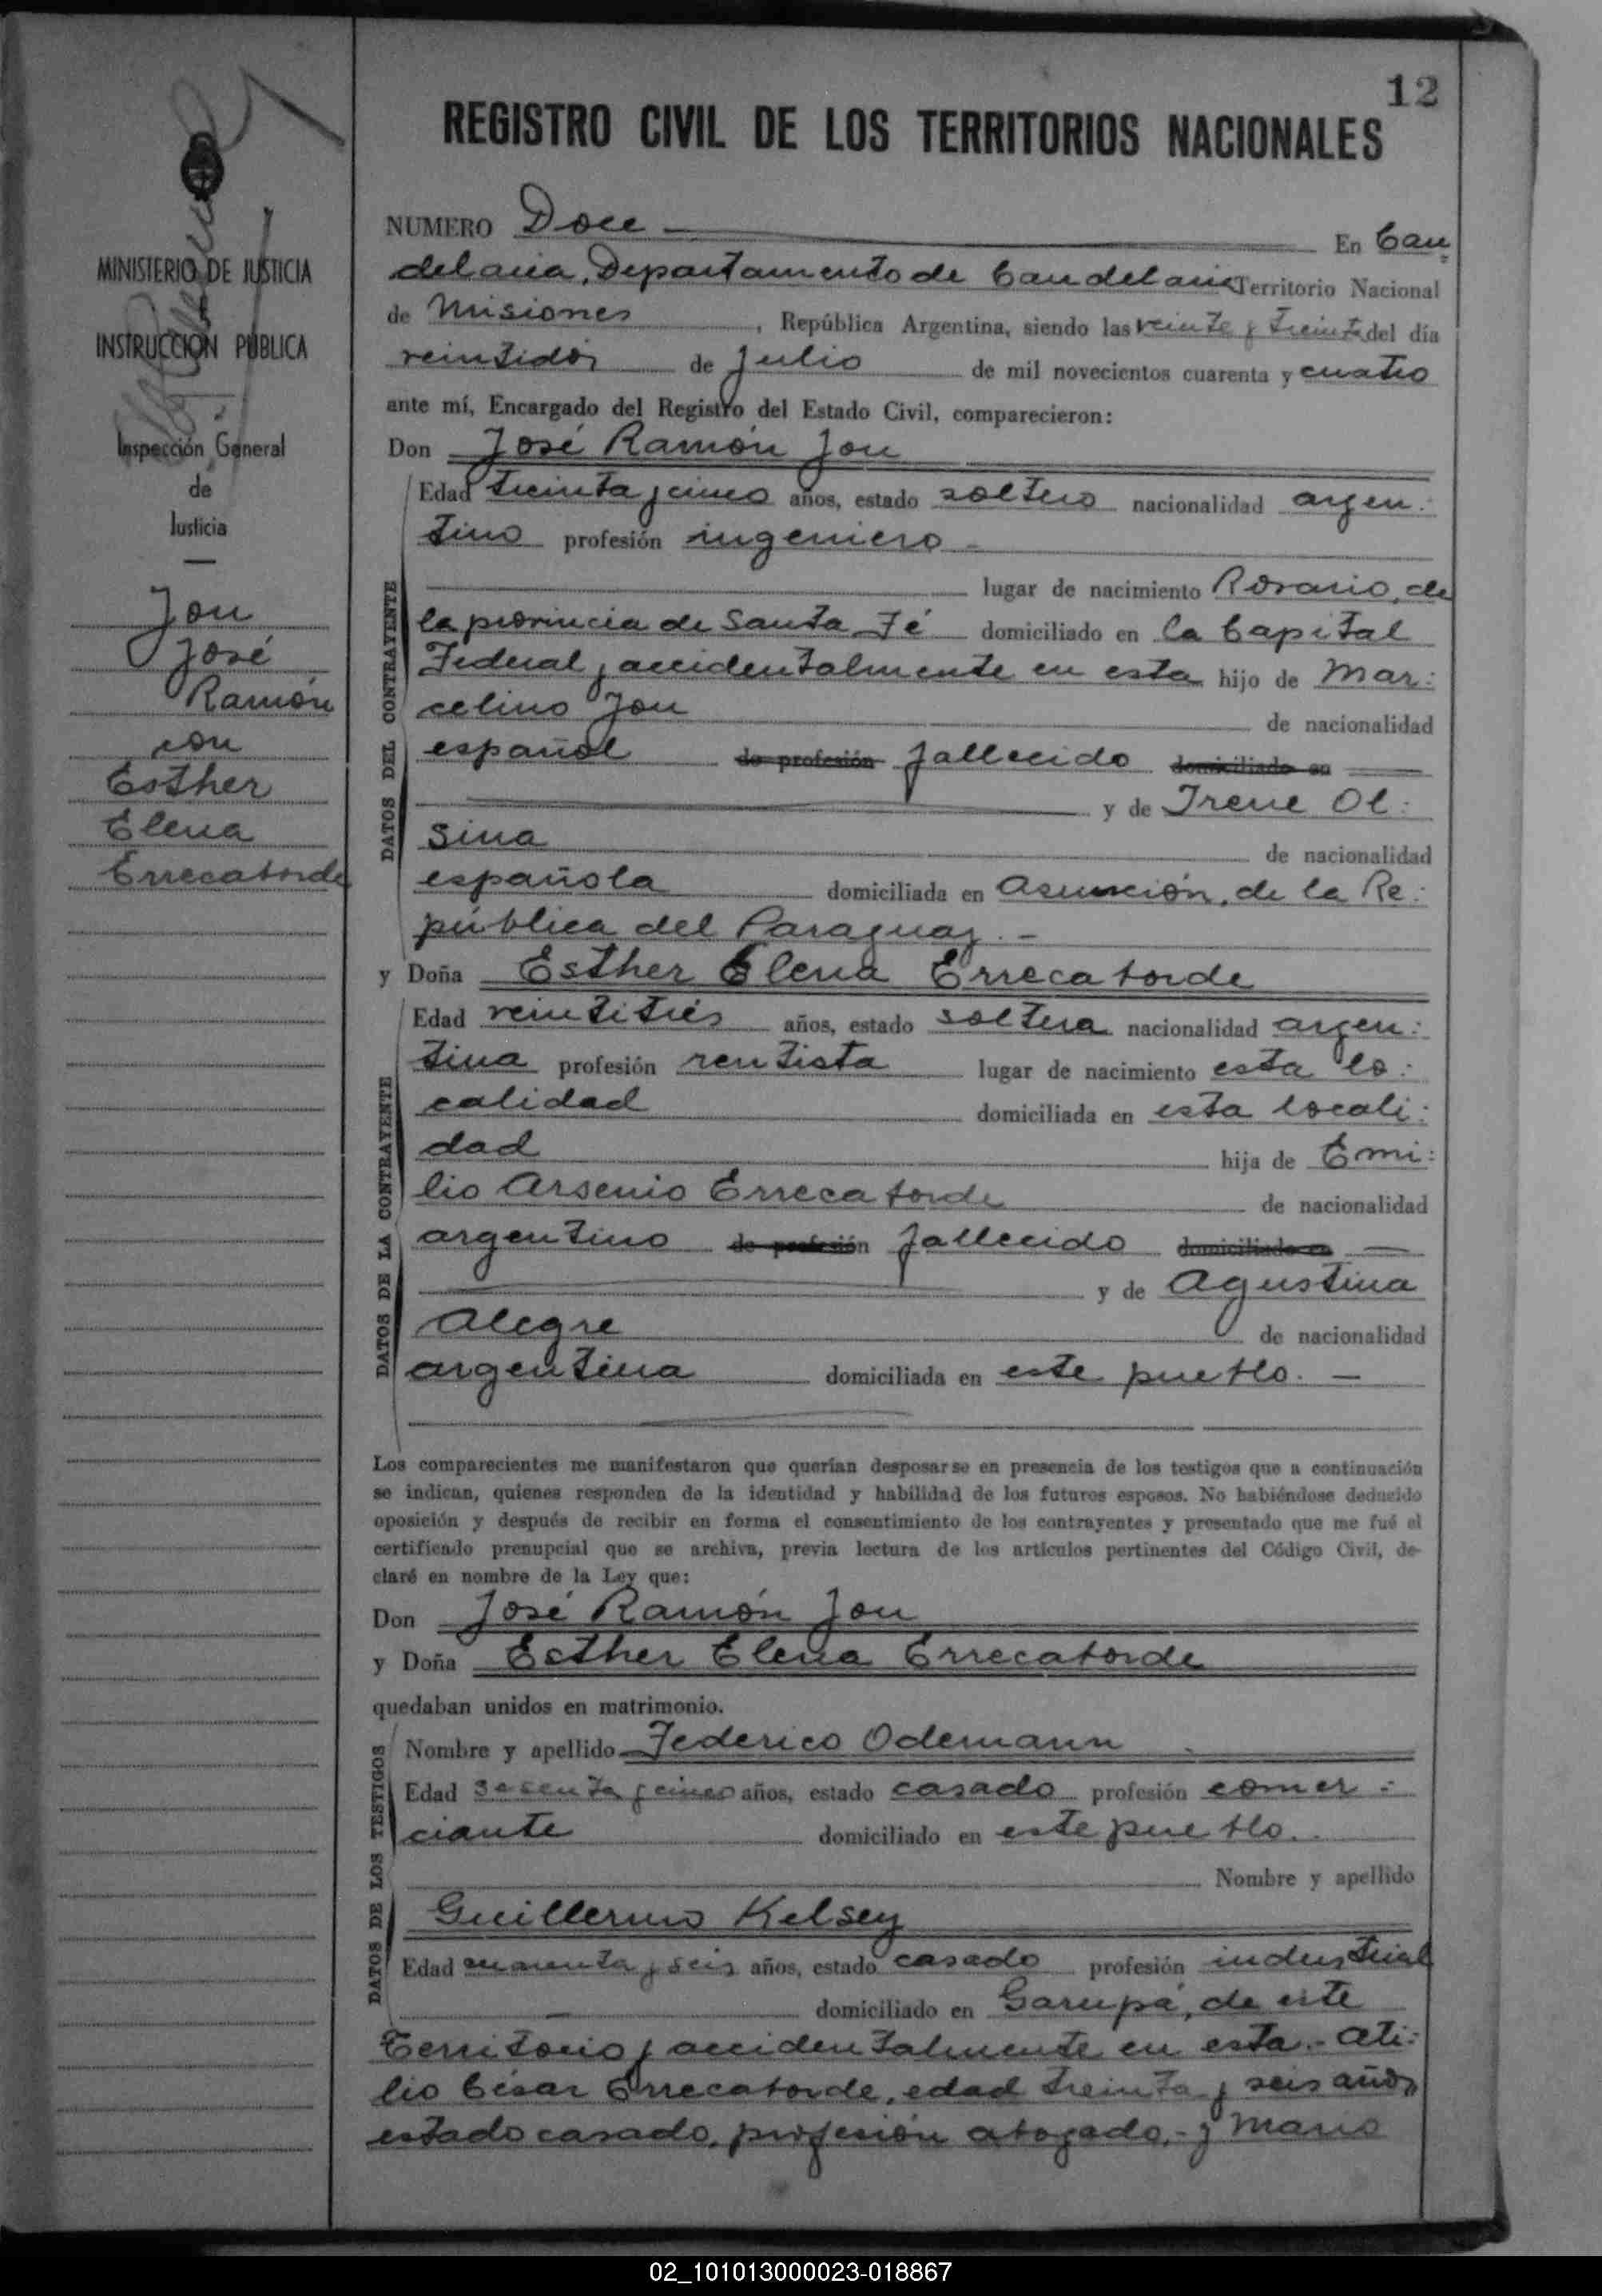 12
REGISTRO CIVIL DE LOS TERRITORIOS NACIONALES
MINISTERIO DE JUSTICIA
INSTRUCCION PUBLICA
Inspección General
de
Justicia
Jou
José
Ramón
con
Esther
Elena
Errecaborde
NUMERO Doce En Can=
delaria, Departamento de Candelaria Territorio Nacional
de Misiones, República Argentina, siendo las veinte y treinta del día
veintidós de Julio de mil novecientos cuarenta y cuatro
ante mí, Encargado del Registro del Estado Civil, comparecieron:
Don José Ramón Jou
DATOS DEL CONTRAYENTE
Edad treinta y cinco años, estado soltero nacionalidad argen:
tino profesión ingeniero -
lugar de nacimiento Rosario, de
la provincia de Santa Fé domiciliado en la Capital
Federal y accidentalmente en esta hijo de Mar:
celino Jou de nacionalidad
español de profesión fallecido domiciliado en
y de Irene Ol:
sina de nacionalidad
española domiciliada en Asunción, de la Re:
pública del Paraguay. -
y Doña Esther Elena Errecaborde
DATOS DE LA CONTRAYENTE
Edad veintitrés años, estado soltera nacionalidad argen:
tina profesión rentista lugar de nacimiento esta lo:
calidad domiciliada en esta locali:
dad hija de Emi:
lio Arsenio Errecaborde de nacionalidad
argentino de profesión fallecido domiciliado en
y de Agustina
Alegre de nacionalidad
argentina domiciliada en este pueblo. -
Los comparecientes me manifestaron que querían desposarse en presencia de los testigos que a continuación
se indican, quienes responden de la identidad y habilidad de los futuros esposos. No habiéndose deducido
oposición y después de recibir en forma el consentimiento de los contrayentes y presentado que me fué el
certificado prenupcial que se archiva, previa lectura de los artículos pertinentes del Código Civil, de-
claré en nombre de la Ley que:
Don José Ramón Jou
y Doña Esther Elena Errecaborde
quedaban unidos en matrimonio.
DATOS DE LOS TESTIGOS
Nombre y apellido Federico Odemann
Edad sesenta y cinco años, estado casado profesión comer:
ciante domiciliado en este pueblo.
Nombre y apellido
Guillermo Kelsey
Edad cuarenta y seis años, estado casado profesión industrial
domiciliado en Garupá, de este
Territorio y accidentalmente en esta.- Ati:
lio César Errecaborde, edad treinta y seis años
estado casado, profesión abogado,- y Mario
02_101013000023-018867